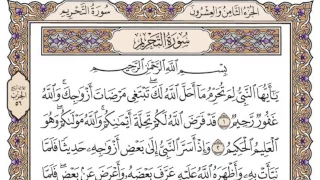 الجُزءُ الثَّامِنُ وَالعِشْرُونَ
سُورَةُ التَّحْرِيمِ
سُورَةُ التَّحْرِيمِ
بِسْمِ اللَّهِ الرَّحْمَٰنِ الرَّحِيمِ
يَٰٓأَيُّهَا ٱلنَّبِيُّ لِمَ تُحَرِّمُ مَآ أَحَلَّ ٱللَّهُ لَكَۖ تَبْتَغِي مَرْضَاتَ أَزْوَٰجِكَۚ وَٱللَّهُ
غَفُورٞ رَّحِيمٞ ١ قَدْ فَرَضَ ٱللَّهُ لَكُمْ تَحِلَّةَ أَيْمَٰنِكُمْۚ وَٱللَّهُ مَوْلَىٰكُمْۖ وَهُوَ
ٱلْعَلِيمُ ٱلْحَكِيمُ ٢ وَإِذْ أَسَرَّ ٱلنَّبِيُّ إِلَىٰ بَعْضِ أَزْوَٰجِهِۦ حَدِيثٗا فَلَمَّا
نَبَّأَتْ بِهِۦ وَأَظْهَرَهُ ٱللَّهُ عَلَيْهِ عَرَّفَ بَعْضَهُۥ وَأَعْرَضَ عَنۢ بَعْضٖۖ فَلَمَّا